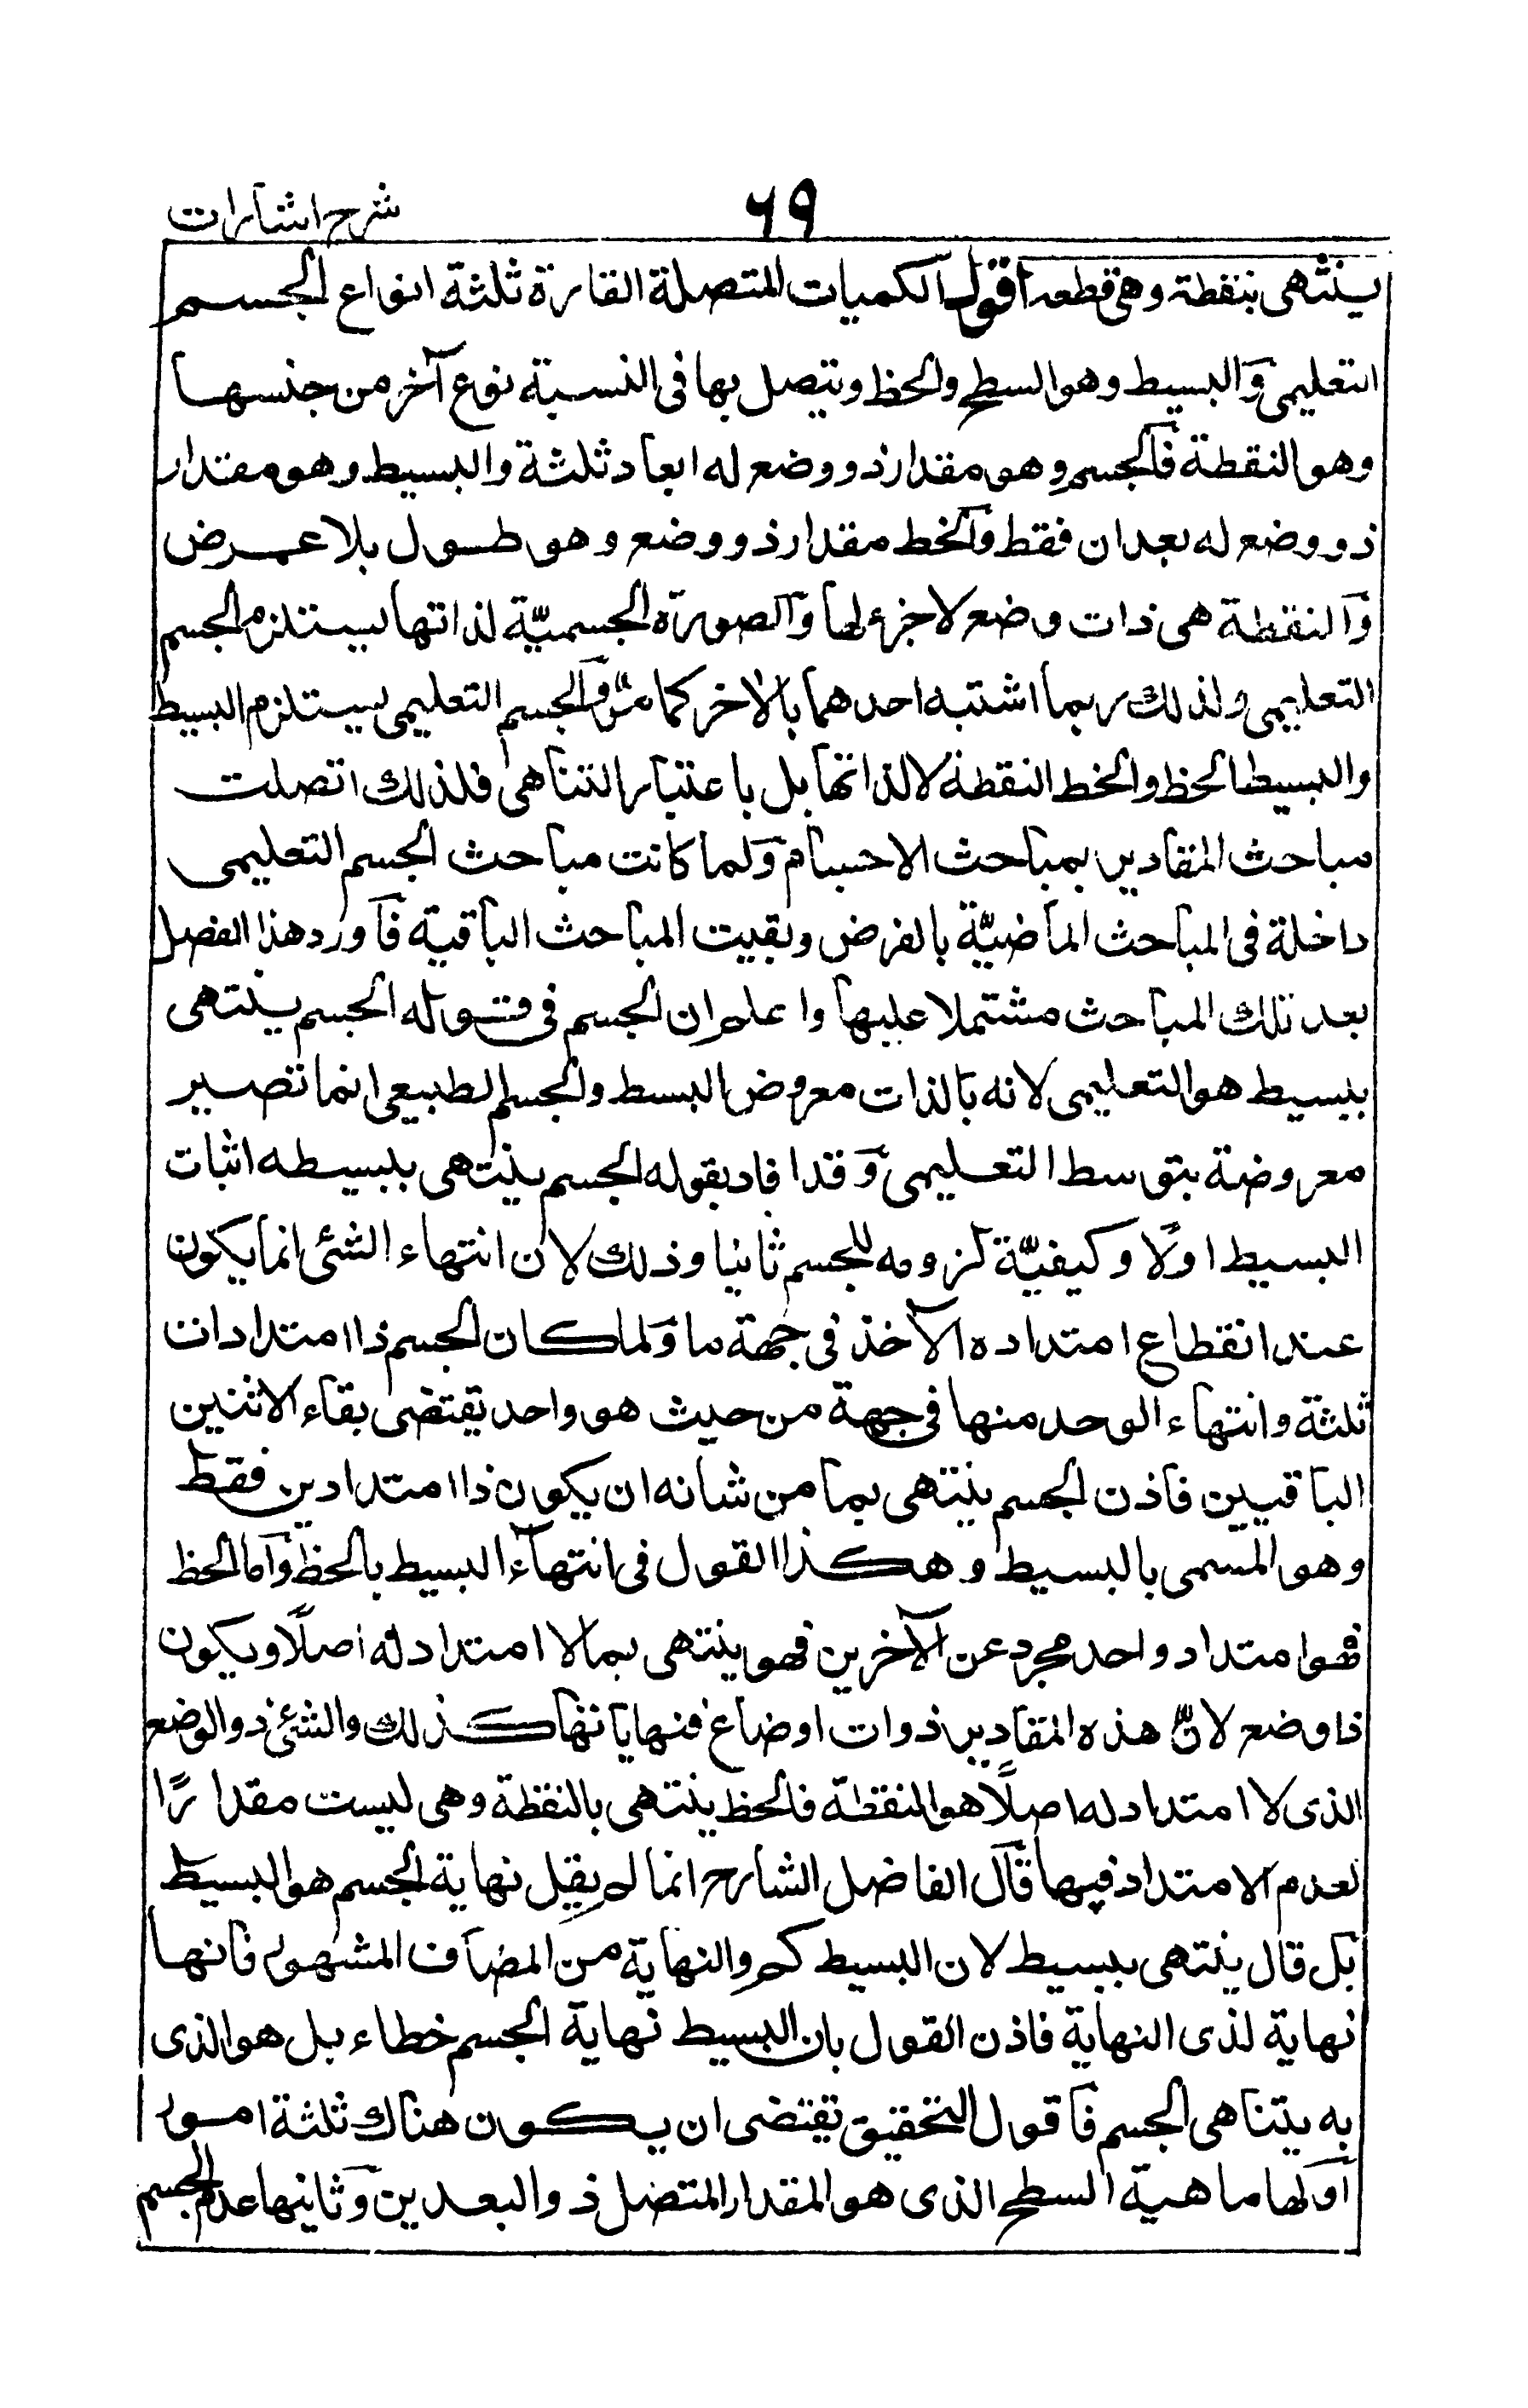 شرح اشارات
۶۹
ينتهى بنقطة وهى قطعه اقول الكميات المتصلة القارة ثلثة انواع الجسم
التعليمى والبسيط وهو السطح والخط ويتصل بها فى النسبة نوع آخر من جنسها
وهو النقطة فالجسم وهو مقدار ذو وضع له ابعاد ثلثة والبسيط وهو مقدار
ذو وضع له بعدان فقط والخط مقدار ذو وضع وهو طول بلا عرض
والنقطة هى ذات وضع لا جزء لها والصورة الجسميّة لذاتها يستلزم الجسم
التعليمى ولذلك ربما اشتبه احدهما بالاخر كما مرّ والجسم التعليمى يستلزم البسيط
والبسيط الخط والخط النقطة لا لذاتها بل باعتبار التناهى فلذلك اتصلت
مباحث المقادير بمباحث الاجسام ولما كانت مباحث الجسم التعليمى
داخلة فى المباحث الماضيّة بالفرض وبقيت المباحث الباقية فاورد هذا الفصل
بعد تلك المباحث مشتملا عليها واعلم ان الجسم فى قوله الجسم ينتهى
ببسيط هو التعليمى لانه بالذات معروض البسط والجسم الطبيعى انما تصير
معروضة بتوسط التعليمى وقد افاد بقوله الجسم ينتهى ببسيطه اثبات
البسيط اولًا وكيفيّة لزومه للجسم ثانيا وذلك لان انتهاء الشئ انما يكون
عند انقطاع امتداده الآخذ فى جهة ما ولما كان الجسم ذا امتدادات
ثلثة وانتهاء الوحد منها فى جهة من حيث هو واحد يقتضى بقاء الاثنين
الباقيين فاذن الجسم ينتهى بما من شانه ان يكون ذا امتدادين فقط
وهو المسمى بالبسيط وهكذا القول فى انتهاء البسيط بالخط واما الخط
فهو امتداد واحد مجرد عن الآخرين فهو ينتهى بما لا امتداد له اصلًا ويكون
ذا وضع لانّ هذه المقادير ذوات اوضاع فنهاياتها كذلك والشئ ذو الوضع
الذى لا امتداد له اصلًا هو النقطة فالخط ينتهى بالنقطة وهى ليست مقدارًا
لعدم الامتداد فيها قال الفاضل الشارح انما لم يقل نهاية الجسم هو البسيط
بل قال ينتهى ببسيط لان البسيط كم والنهاية من المضاف المشهور فانها
نهاية لذى النهاية فاذن القول بان البسيط نهاية الجسم خطاء بل هو الذى
به يتناهى الجسم فاقول التحقيق تقتضى ان يكون هناك ثلثة امور
اولها ماهية السطح الذى هو المقدار المتصل ذو البعدين وثانيها عدم الجسم